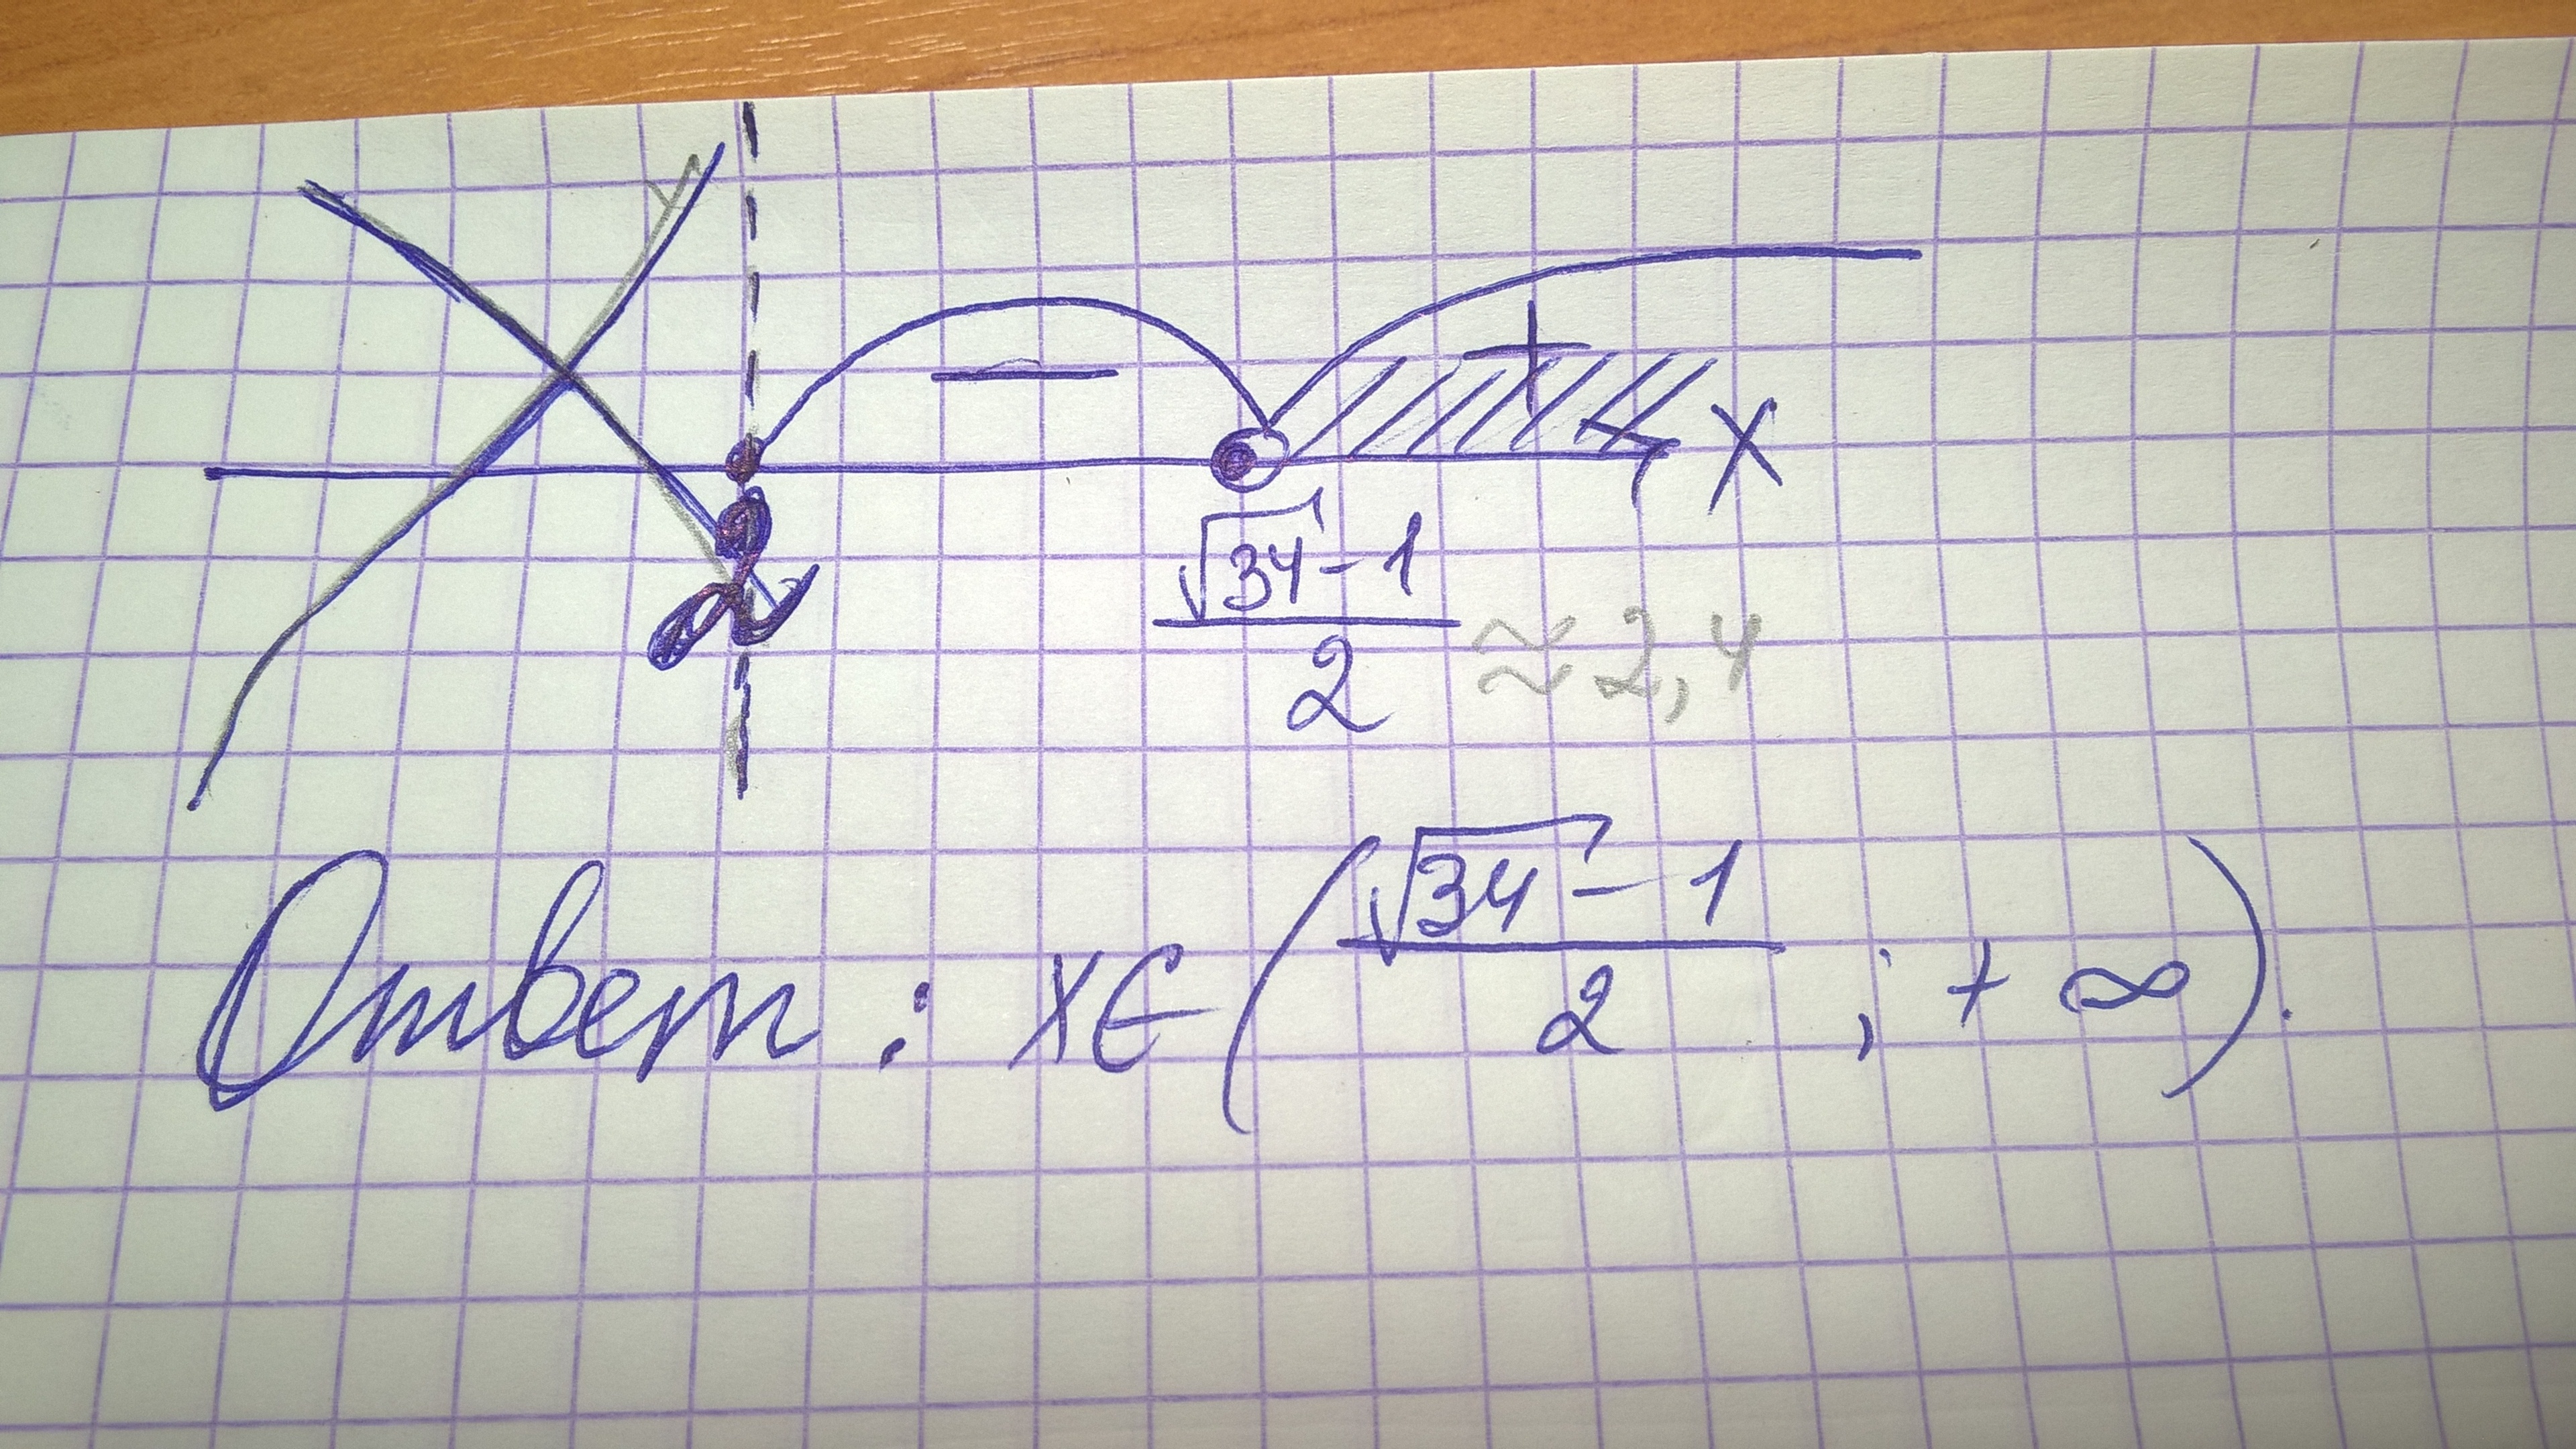 − + x
2
(√34 − 1)/2 ≈ 2,4
Ответ: x∈((√34 − 1)/2 ; + ∞).